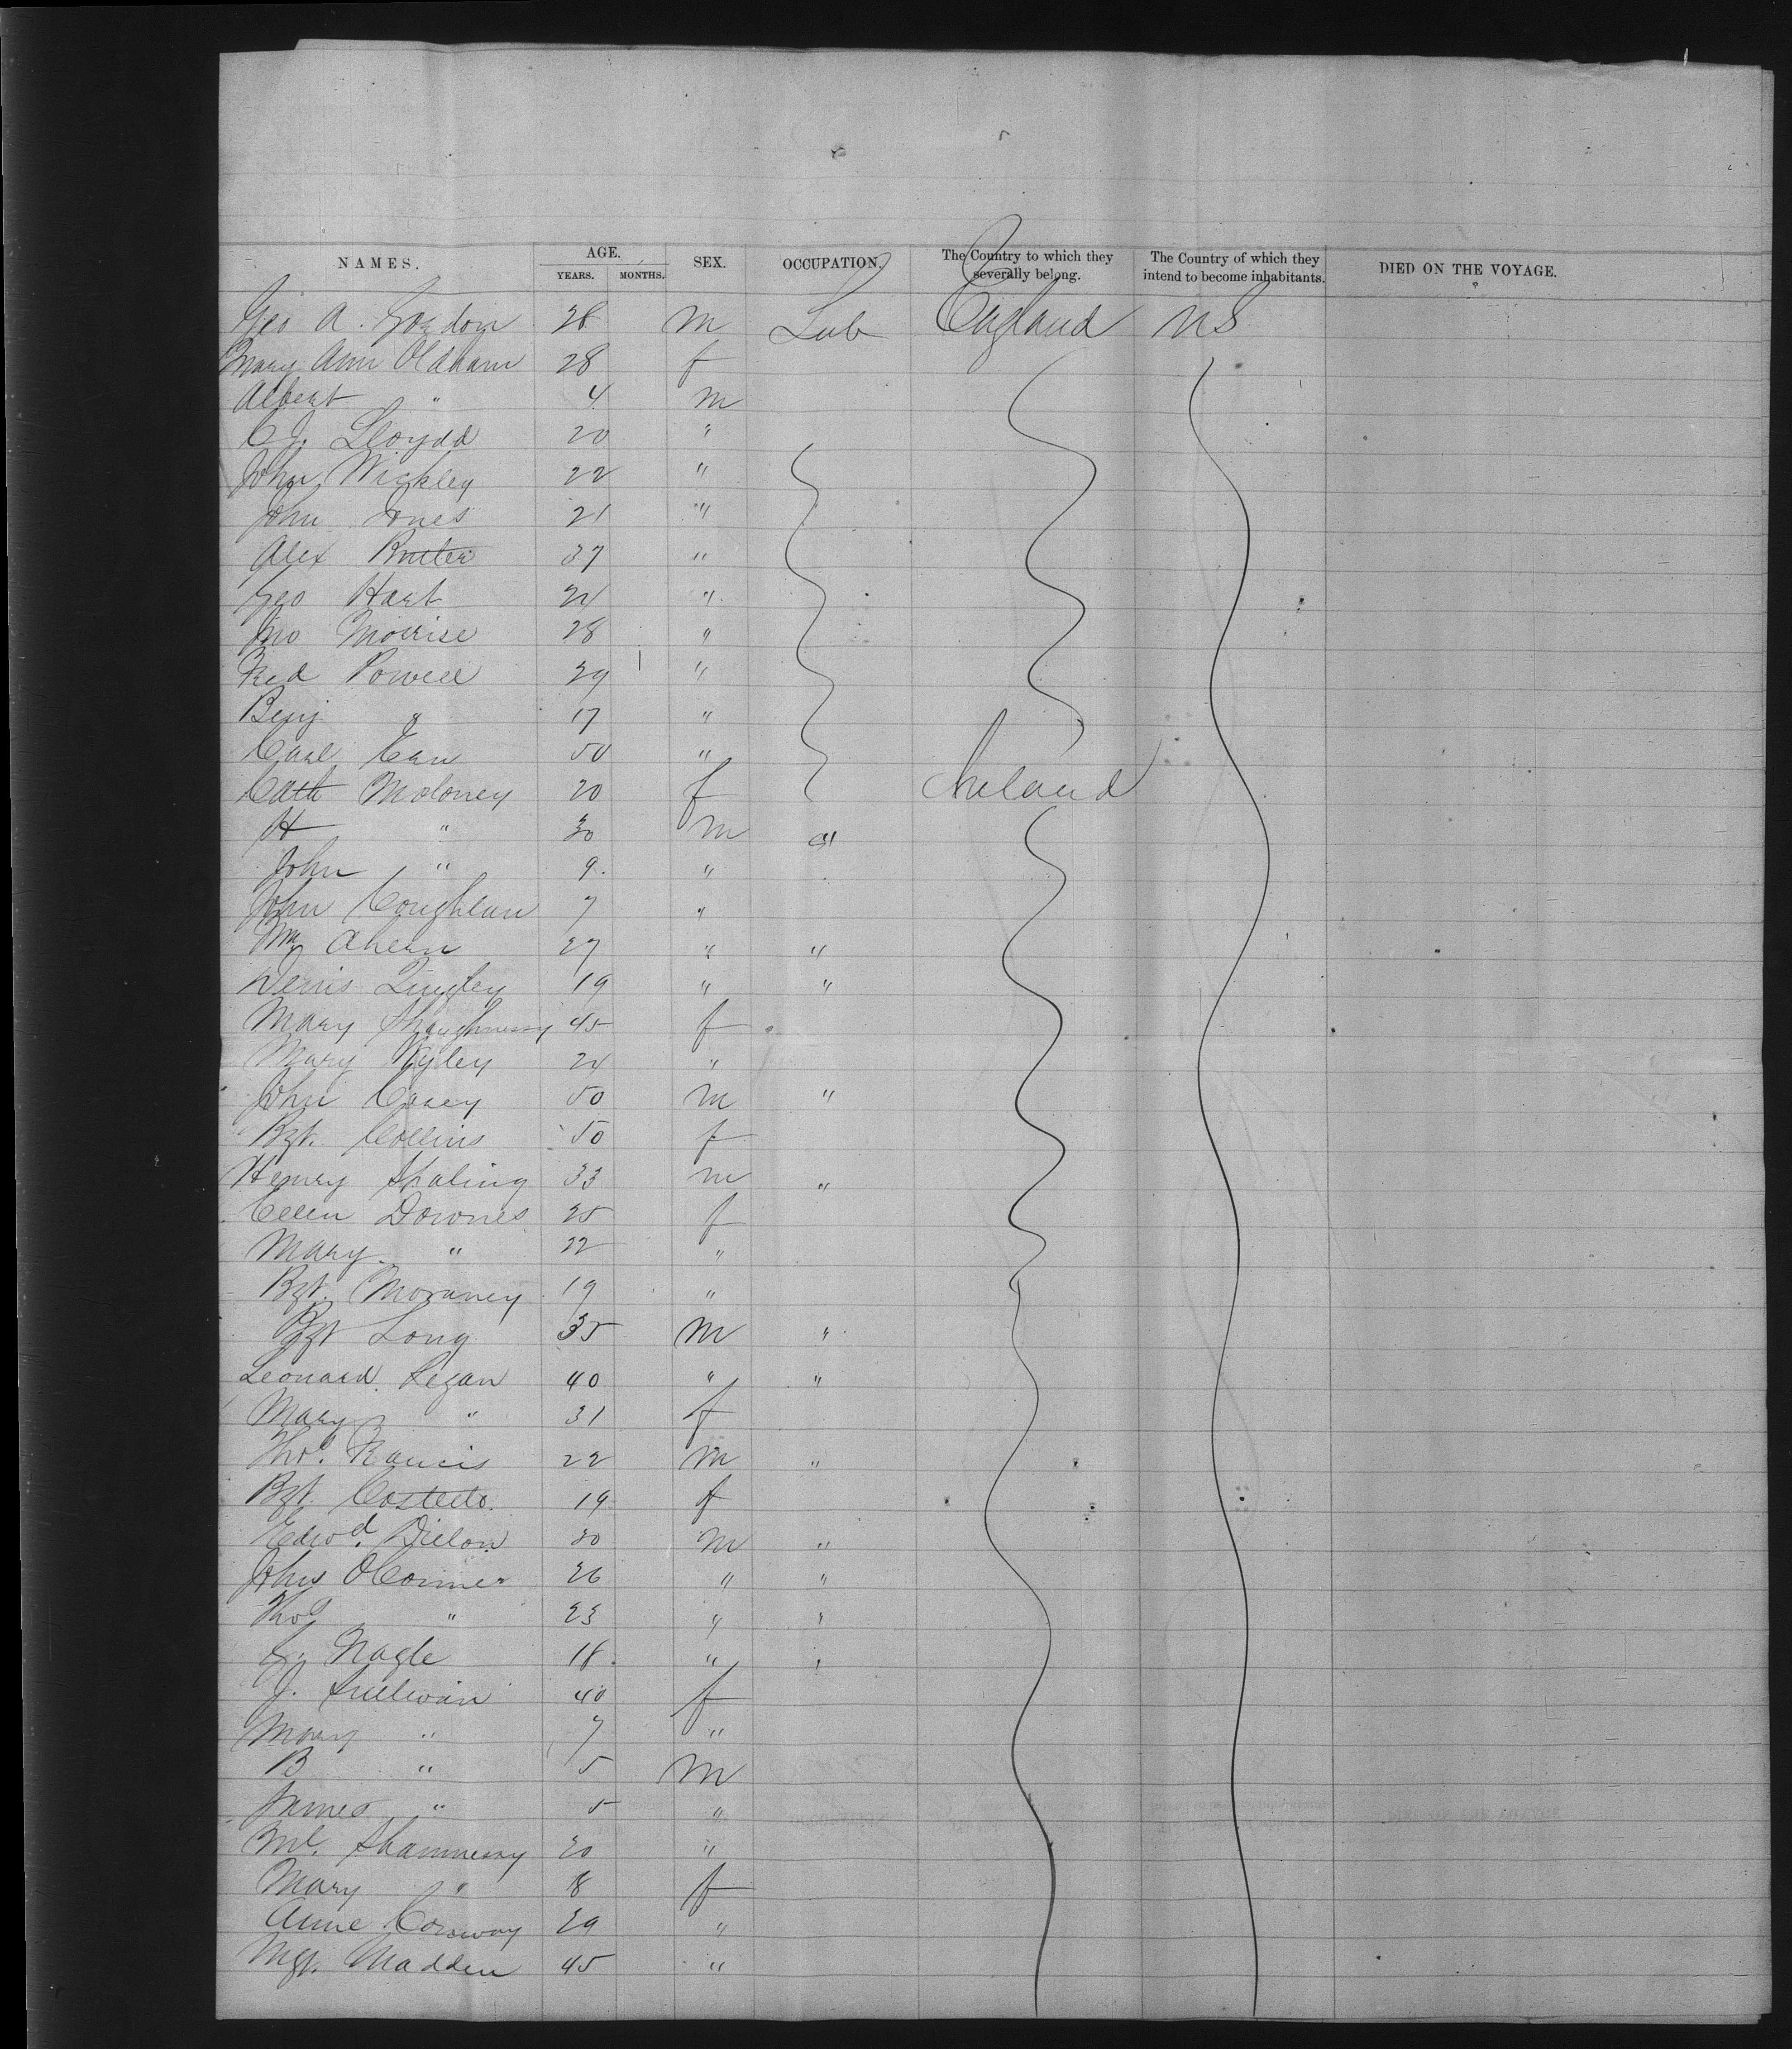 NAMES. AGE. SEX. OCCUPATION. The Country to which they severally belong. The Country of which they intend to become inhabitants. DIED ON THE VOYAGE.
YEARS. MONTHS.
Geo A. Gordon 28 m Lab England US
Mary Ann Oldham 28 f
Albert " 4 m
C J. Lloydd 20 "
John Wickley 22 "
John Jones 21 "
Alex Butler 37 "
Geo Hart 24 "
Jno Morrise 28 "
Fred Powell 29 "
Benj " 17 "
Carl Carr 50 "
Cath Moloney 20 f Ireland
H " 30 m "
John " 9 "
John Coughlan 7 "
Wm Ahern 27 " "
Denis Quigley 19 " "
Mary Shaughnessy 45 f
Mary Kyley 24 "
John Casey 50 m "
Bgt. Collins 50 f
Henry Shaling 33 m "
Ellen Downes 25 f
Mary " 22 "
Bgt. Moraney 19 "
Bgt Long 35 m "
Leonard Regan 40 " "
Mary " 31 f
Thos. Francis 22 m "
Bgt. Costello. 19 f
Edwd. Dillon 30 m "
John OConner 26 " "
Thos " 23 " "
Nagle 18 " "
J. Sullivan 40 f
Mary " 7 "
B " 5 m
James " 5 "
Ml. Shannessy 20 "
Mary " 18 f
Anne Conway 29 "
Mgt. Madden 45 "